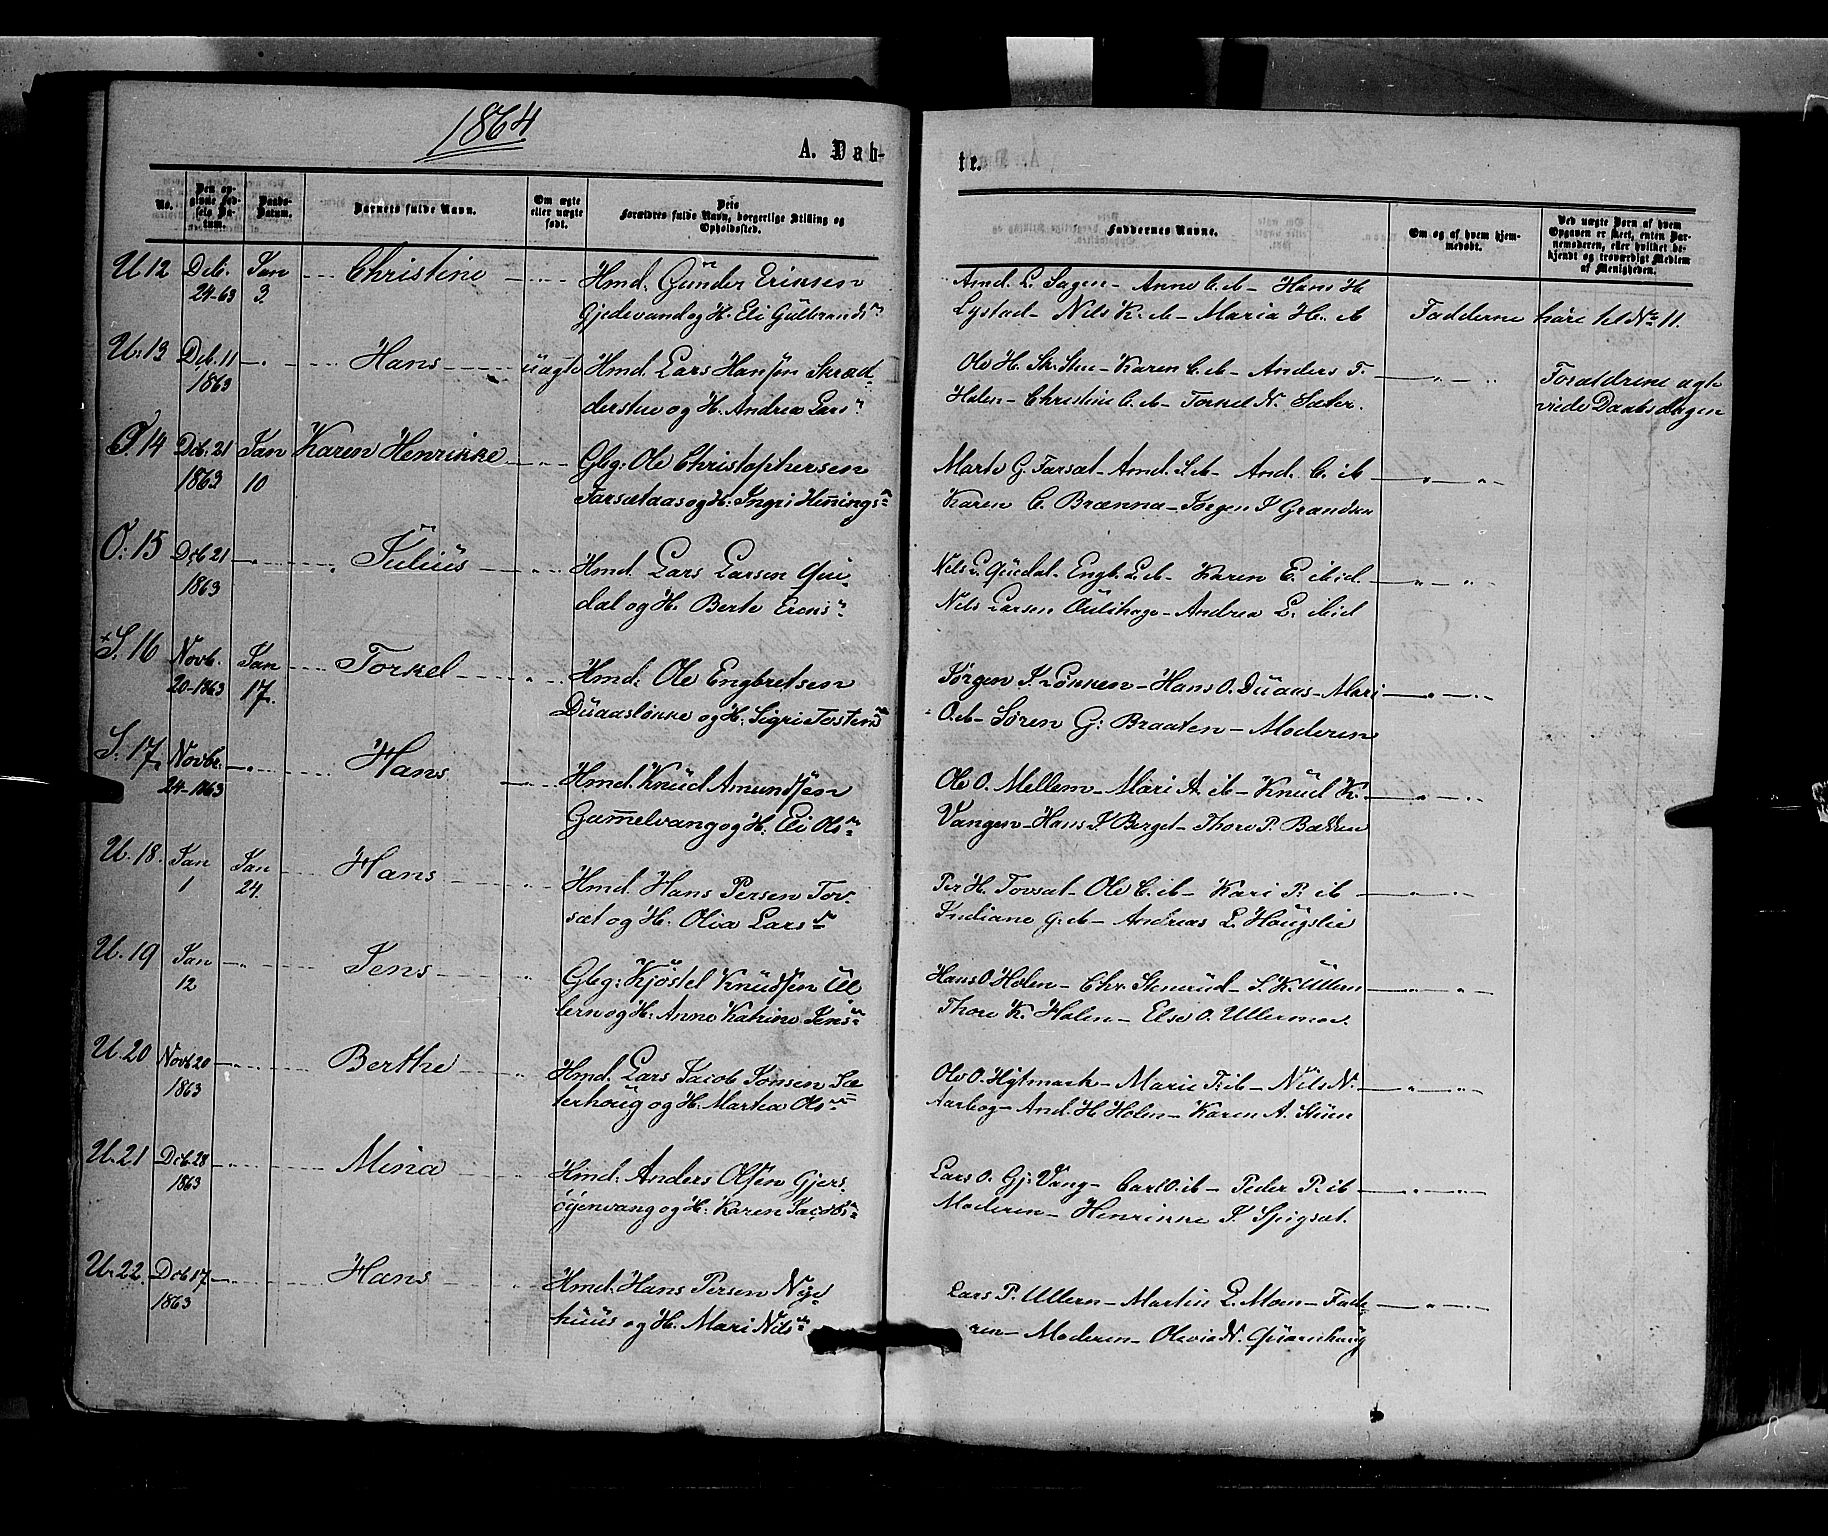 1864
A. Dab-
tr.
No.
Den op-
givne Fød-
sels Da-
tum.
Daabs-
Datum.
Barnets fulde Navn.
Om ægte
eller uægte
født.
Dets
Forældres fulde Navn, borgerlige Stilling og
Opholdssted.
Faddernes Navne.
Om og af hvem hjem-
medøbt.
Ved uægte Børn af hvem
Opgaven er skeet, enten Bar-
nemoderen, eller hvilket be-
kjendt og troværdigt Medlem
af Menigheden.
U 12 Deb. Jan Christine Hmd. Gunder Eriksen
24-63 3. Gjedevand og H. Eli Gulbrands
Amd. L. Sagen - Anne C. ib - Hans H
Lystad - Nils K. ib - Maria H. ib Fadderne høre til No 11.
U. 13 Deb. 11 Hans uægte Hmd. Lars Hansen Skræd-
1863 derstue og H. Andrea Lars
Ole H. Sk.Stue - Karen C. ib - Anders T. Forældrene ægte
Holen - Christine C. ib - Torkel N. Sæter. viede Daabsdagen
O. 14 Deb. 21 Jan Karen Henrikke Gbg: Ole Christophersen
1863 10 Farsætaas og H: Ingri Hennings
Marte G. Farsæt - Amd. S. ib - And. C. ib
Karen C. Brænna - Jørgen J Granden
O: 15 Deb 21 Julius Hmd. Lars Larsen Qu-
1863 dal og H. Berte Eriks
Nils L. Quedal - Engb. L. ib - Karen E. ibid.
Nils Larsen Oulihage - Andrea L. ibid
S. 16 Novb. Jan Torkel Hmd: Ole Engbretsen
20-1863 17. Duaasløkke og H: Sigri Tostens
Jørgen J. Løkken - Hans O. Duaas - Mari
O. ib - Søren G: Braaten - Moderen
S. 17. Novbr. Hans Hmd. Knud Amundsen
24-1863 Gammelvang og H. Eli Ols
Ole O. Mellem - Mari A. ib - Knud K.
Vangen - Hans J. Berget - Thore P. Bakken
U. 18. Jan Jan Hans Hmd. Hans Persen Tov-
1 24. sæt og H. Olia Lars
Per H. Tovsæt - Ole C. ib - Kari P. ib
Indiane G. ib - Andreas L. Haugslie
U. 19 Jan Jens Gbg: Kjøstel Knudsen Ul-
12 lern og H. Anne Katrine Jens
Hans O Holen - Chr. Stenrud - S. K. Ullern
Thore K. Holen - Else O. Ullernmo.
U. 20 Novb 20 Berthe Hmd. Lars Jacob Jonsen Sæ-
1863 terhoug og H. Martea Ols
Ole O. Hytmark - Marie T. ib - Nils N.
Aarbog - And. H Holen - Karen A. Stuen
U. 21 Deb. 28 Mina Hmd: Anders Olsen Gjers-
1863 øgenvang og H: Karen Jacobs
Lars O. Gj. Vang - Carl O. ib - Peder P. ib
Moderen - Henrikke J. Spigset.
U. 22. Deb 17 Hans Hmd. Hans Persen Nye-
1863 huus og H. Mari Nils
Lars P. Ullern - Martin L. Moen - Fade-
ren - Moderen - Olevia N. Quærnhaug